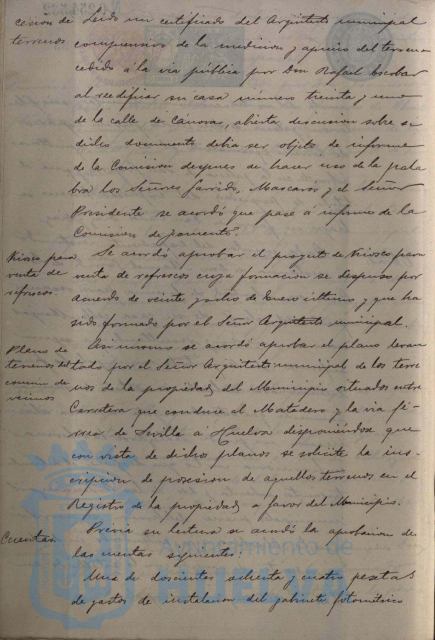 cesion de
terrenos
Leido un certificado del Arquitecto municipal
comprensivo de la medicion y aprecio del terreno
cedido á la via pública por Don Rafael Escobar
al reedificar su casa número treinta y uno
de la calle de Cánova, abierta discusion sobre si
dicho documento debia ser objeto de informe
de la Comision despues de hacer uso de la pala
bra los Señores Garrido, Mascarós y el Señor
Presidente se acordó que pase á informe de la
Comision de fomento.
Kiosco para
venta de
refrescos
Se acordó aprobar el proyecto de Kiosco para
venta de refrescos cuya formacion se dispuso por
acuerdo de veinte y ocho de Enero último y que ha
sido formado por el Señor Arquitecto municipal.
Plano de
terrenos del
comun de
vecinos
Asimismo se acordó aprobar el plano levan
tado por el Señor Arquitecto municipal de los terre
nos de la propiedad del Municipio situados entre
Carretera que conduce al Matadero y la via fé-
rrea de Sevilla á Huelva disponiéndose que
con vista de dichos planos se solicite la ins-
cripcion de posesion de aquellos terrenos en el
Registro de la propiedad á favor del Municipio.
Cuentas
Previa su lectura se acordó la aprobacion de
las cuentas siguientes:
Una de doscientas ochenta y cuatro pesetas
de gastos de instalacion del gabinete fotométrico
Ayuntamiento de
HUELVA